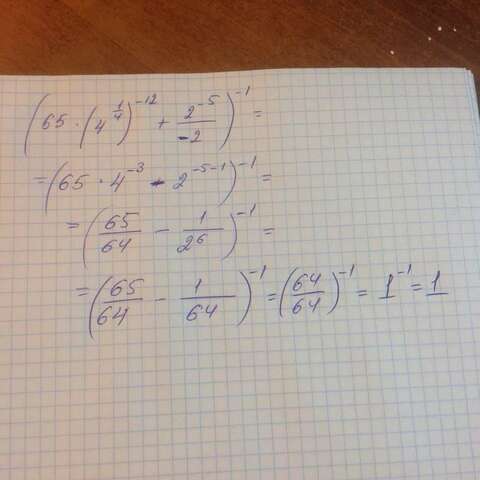 (65 · (4^{1/4})^{-12} + 2^{-5}/-2)^{-1} =
= (65 · 4^{-3} - 2^{-5-1})^{-1} =
= (65/64 - 1/2^6)^{-1} =
= (65/64 - 1/64)^{-1} = (64/64)^{-1} = 1^{-1} = 1